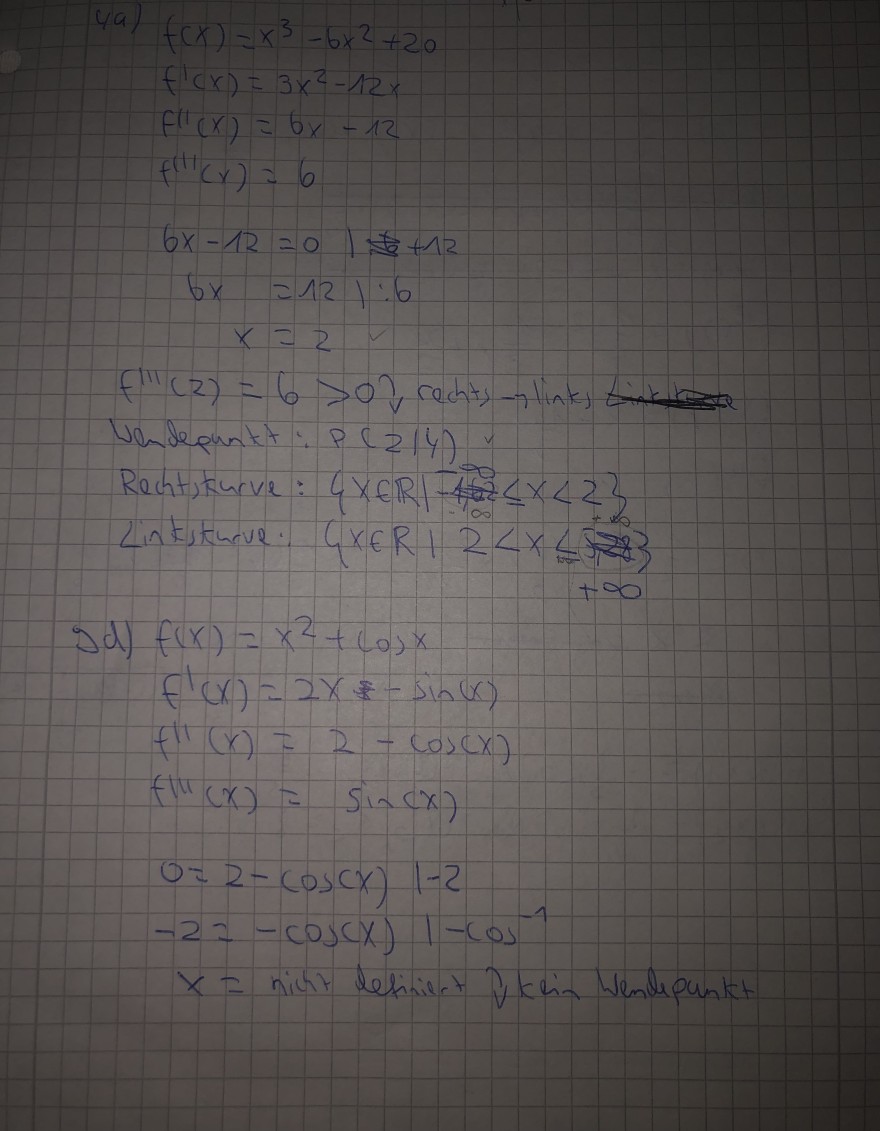 4a) f(x) = x³ - 6x² + 20
f'(x) = 3x² - 12x
f''(x) = 6x - 12
f'''(x) = 6
6x - 12 = 0 | +12
6x = 12 | :6
x = 2 ✓
f'''(2) = 6 > 0 ↴ rechts → links
Wendepunkt: P(2|4) ✓
Rechtskurve: {x∈ℝ | -∞ ≤ x < 2}
Linkskurve: {x∈ℝ | 2 < x ≤ +∞}
d) f(x) = x² + cosx
f'(x) = 2x - sin(x)
f''(x) = 2 - cos(x)
f'''(x) = sin(x)
0 = 2 - cos(x) | -2
-2 = -cos(x) | -cos⁻¹
x = nicht definiert ↴ kein Wendepunkt